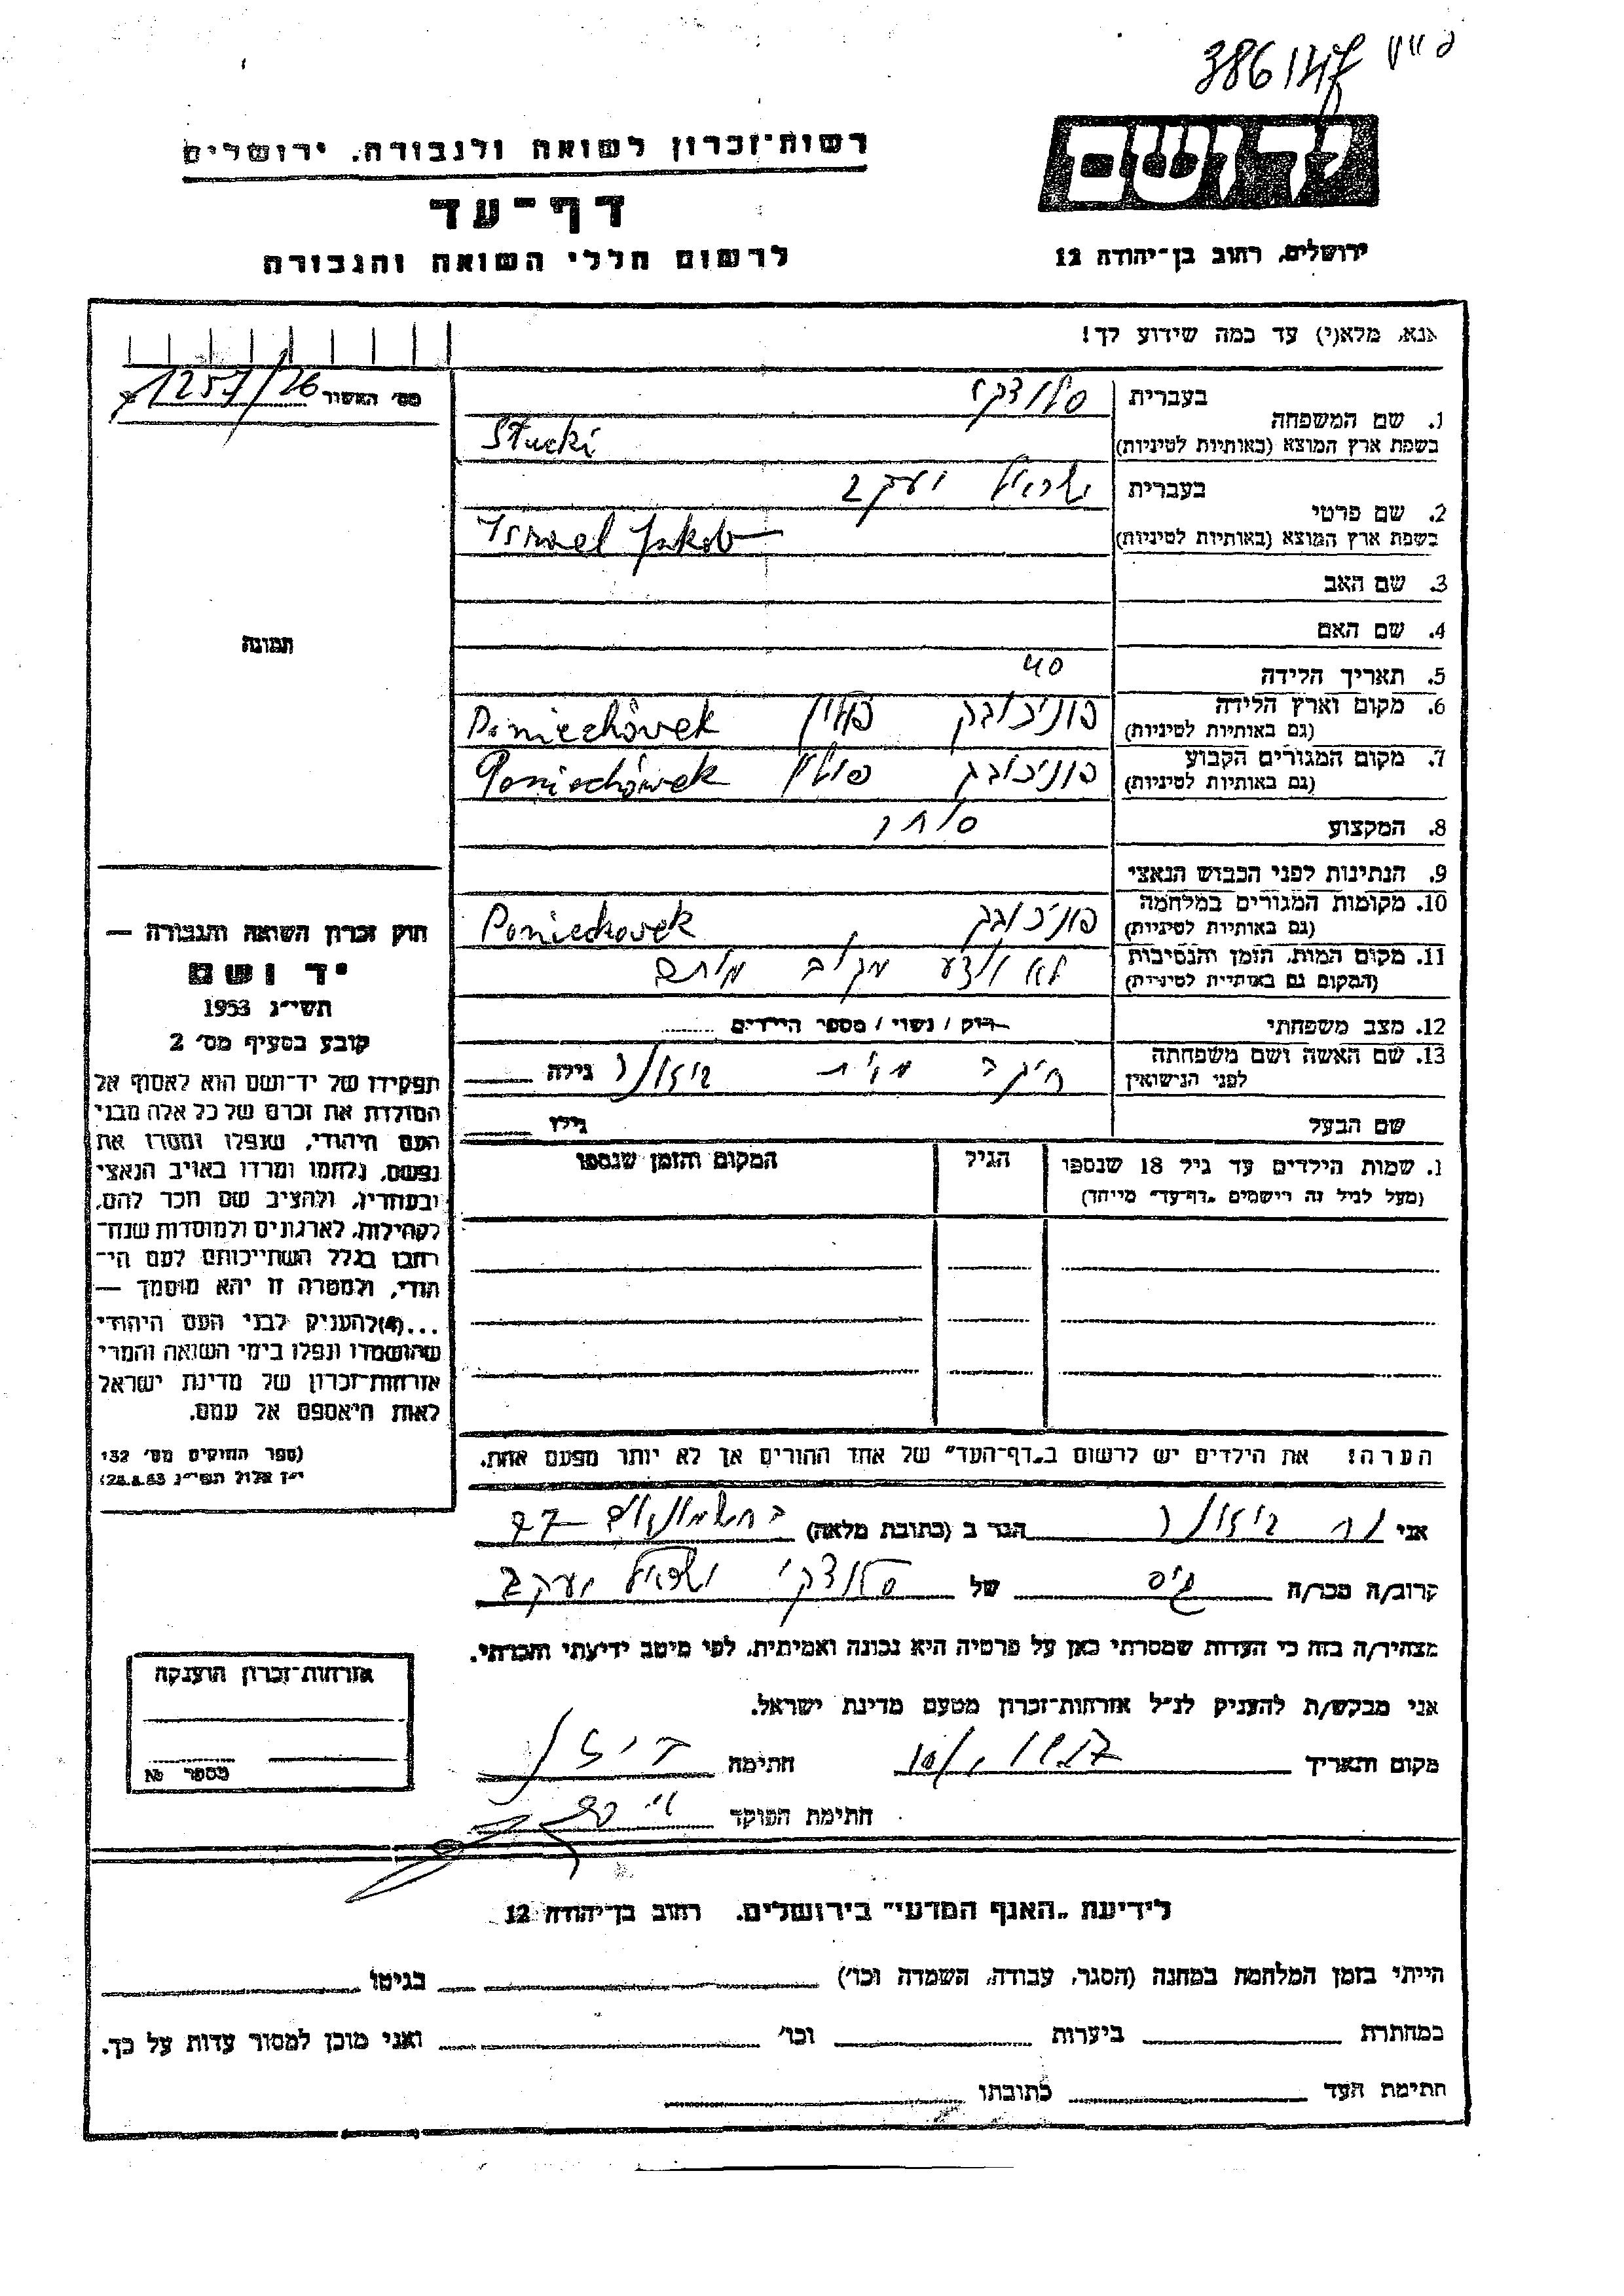 386147
רשות־זכרון לשואה ולגבורה, ירושלים
דף־עד
לרשום חללי השואה והגבורה
ירושלים, רחוב בן־יהודה 12
אנא, מלא(י) עד כמה שידוע לך!
מס׳ האשור 1257/26
1. שם המשפחה
בעברית סלוצקי
בשפת ארץ המוצא (באותיות לטיניות) Słucki
2. שם פרטי
בעברית ישראל יעקב
בשפת ארץ המוצא (באותיות לטיניות) Israel Jakob
3. שם האב
4. שם האם
תמונה
5. תאריך הלידה 40
6. מקום וארץ הלידה (גם באותיות לטיניות) פוניכובק פולין Poniechówek
7. מקום המגורים הקבוע (גם באותיות לטיניות) פוניכובק פולין Poniechówek
8. המקצוע סוחר
9. הנתינות לפני הכבוש הנאצי
10. מקומות המגורים במלחמה (גם באותיות לטיניות) פוניכובק Poniechovek
11. מקום המות, הזמן והנסיבות (המקום גם באותיות לטיניות) לא ידוע מקום מותם
12. מצב משפחתי רוק / נשוי / מספר הילדים
13. שם האשה ושם משפחתה לפני הנישואין גילה
שם הבעל גילו
1. שמות הילדים עד גיל 18 שנספו (מעל לגיל זה רישמים „דף־עד״ מיוחד) הגיל המקום והזמן שנספו
חוק זכרון השואה והגבורה —
יד ושם
תשי״ג 1953
קובע בסעיף מס׳ 2
תפקידו של יד־ושם הוא לאסוף אל
המולדת את זכרם של כל אלה מבני
העם היהודי, שנפלו ומסרו את
נפשם, נלחמו ומרדו באויב הנאצי
ובעוזריו, ולהציב שם וזכר להם,
לקהילות, לארגונים ולמוסדות שנח־
רבו בגלל השתייכותם לעם הי־
הודי, ולמטרה זו יהא מוסמך —
...(4) להעניק לבני העם היהודי
שהושמדו ונפלו בימי השואה והמרי
אזרחות־זכרון של מדינת ישראל
לאות היאספם אל עמם.
(ספר החוקים מס׳ 132
י״ז אלול תשי״ג 28.8.53)
הערה! את הילדים יש לרשום ב„דף־העד״ של אחד ההורים אך לא יותר מפעם אחת.
אני הגר ב (כתובת מלאה)
קרוב/ה מכר/ה גיס של סלוצקי ישראל יעקב
מצהיר/ה בזה כי העדות שמסרתי כאן על פרטיה היא נכונה ואמיתית, לפי מיטב ידיעתי והכרתי.
אני מבקש/ת להעניק לנ״ל אזרחות־זכרון מטעם מדינת ישראל.
מקום ותאריך חתימה
חתימת הפוקד
אזרחות־זכרון הוענקה
מספר №
לידיעת „האגף המדעי״ בירושלים, רחוב בן־יהודה 12
הייתי בזמן המלחמה במחנה (הסגר, עבודה, השמדה וכו׳) בגיטו
במחתרת ביערות וכו׳ ואני מוכן למסור עדות על כך.
חתימת העד כתובתו